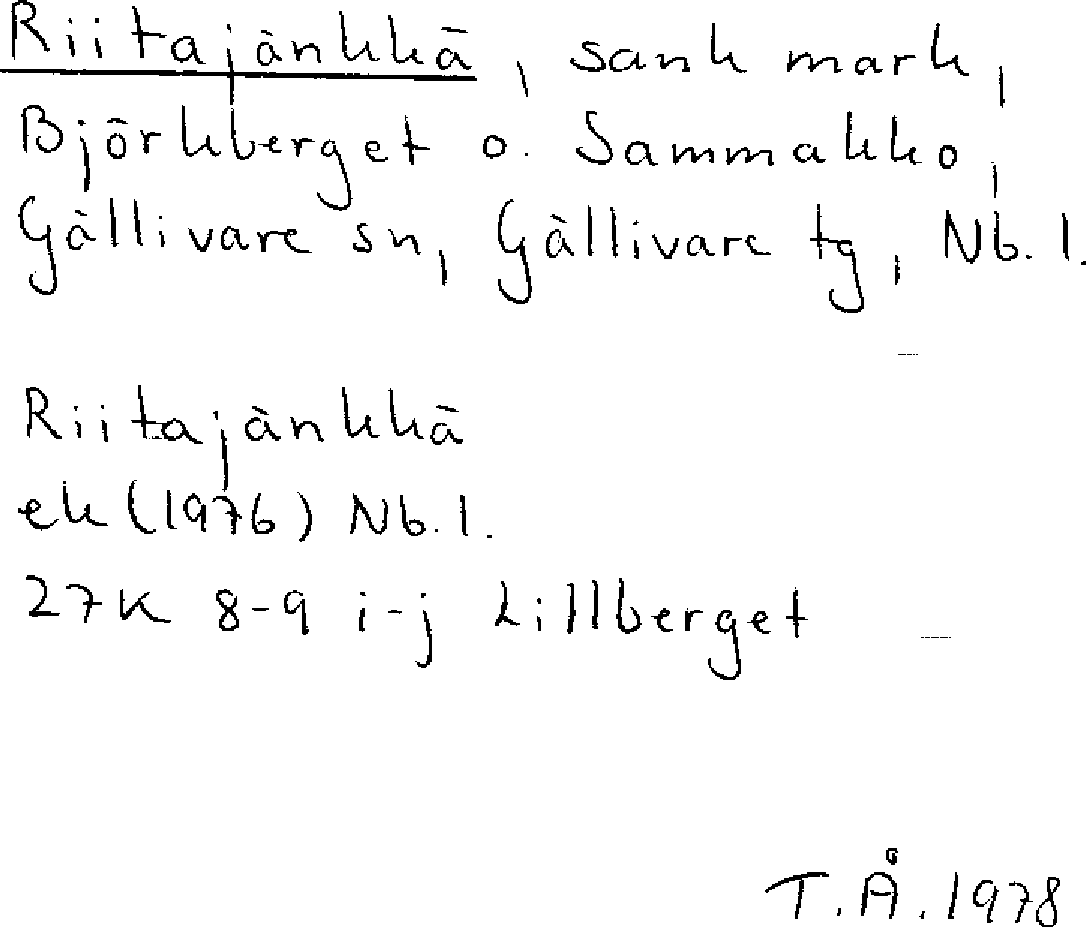 Riitajänkkä, sank mark,
Björkberget o. Sammakko,
Gällivare sn, Gällivare tg, Nb. l.
Riitajänkkä
ek (1976) Nb. l.
27K 8-9 i-j Lillberget
T.Å. 1978